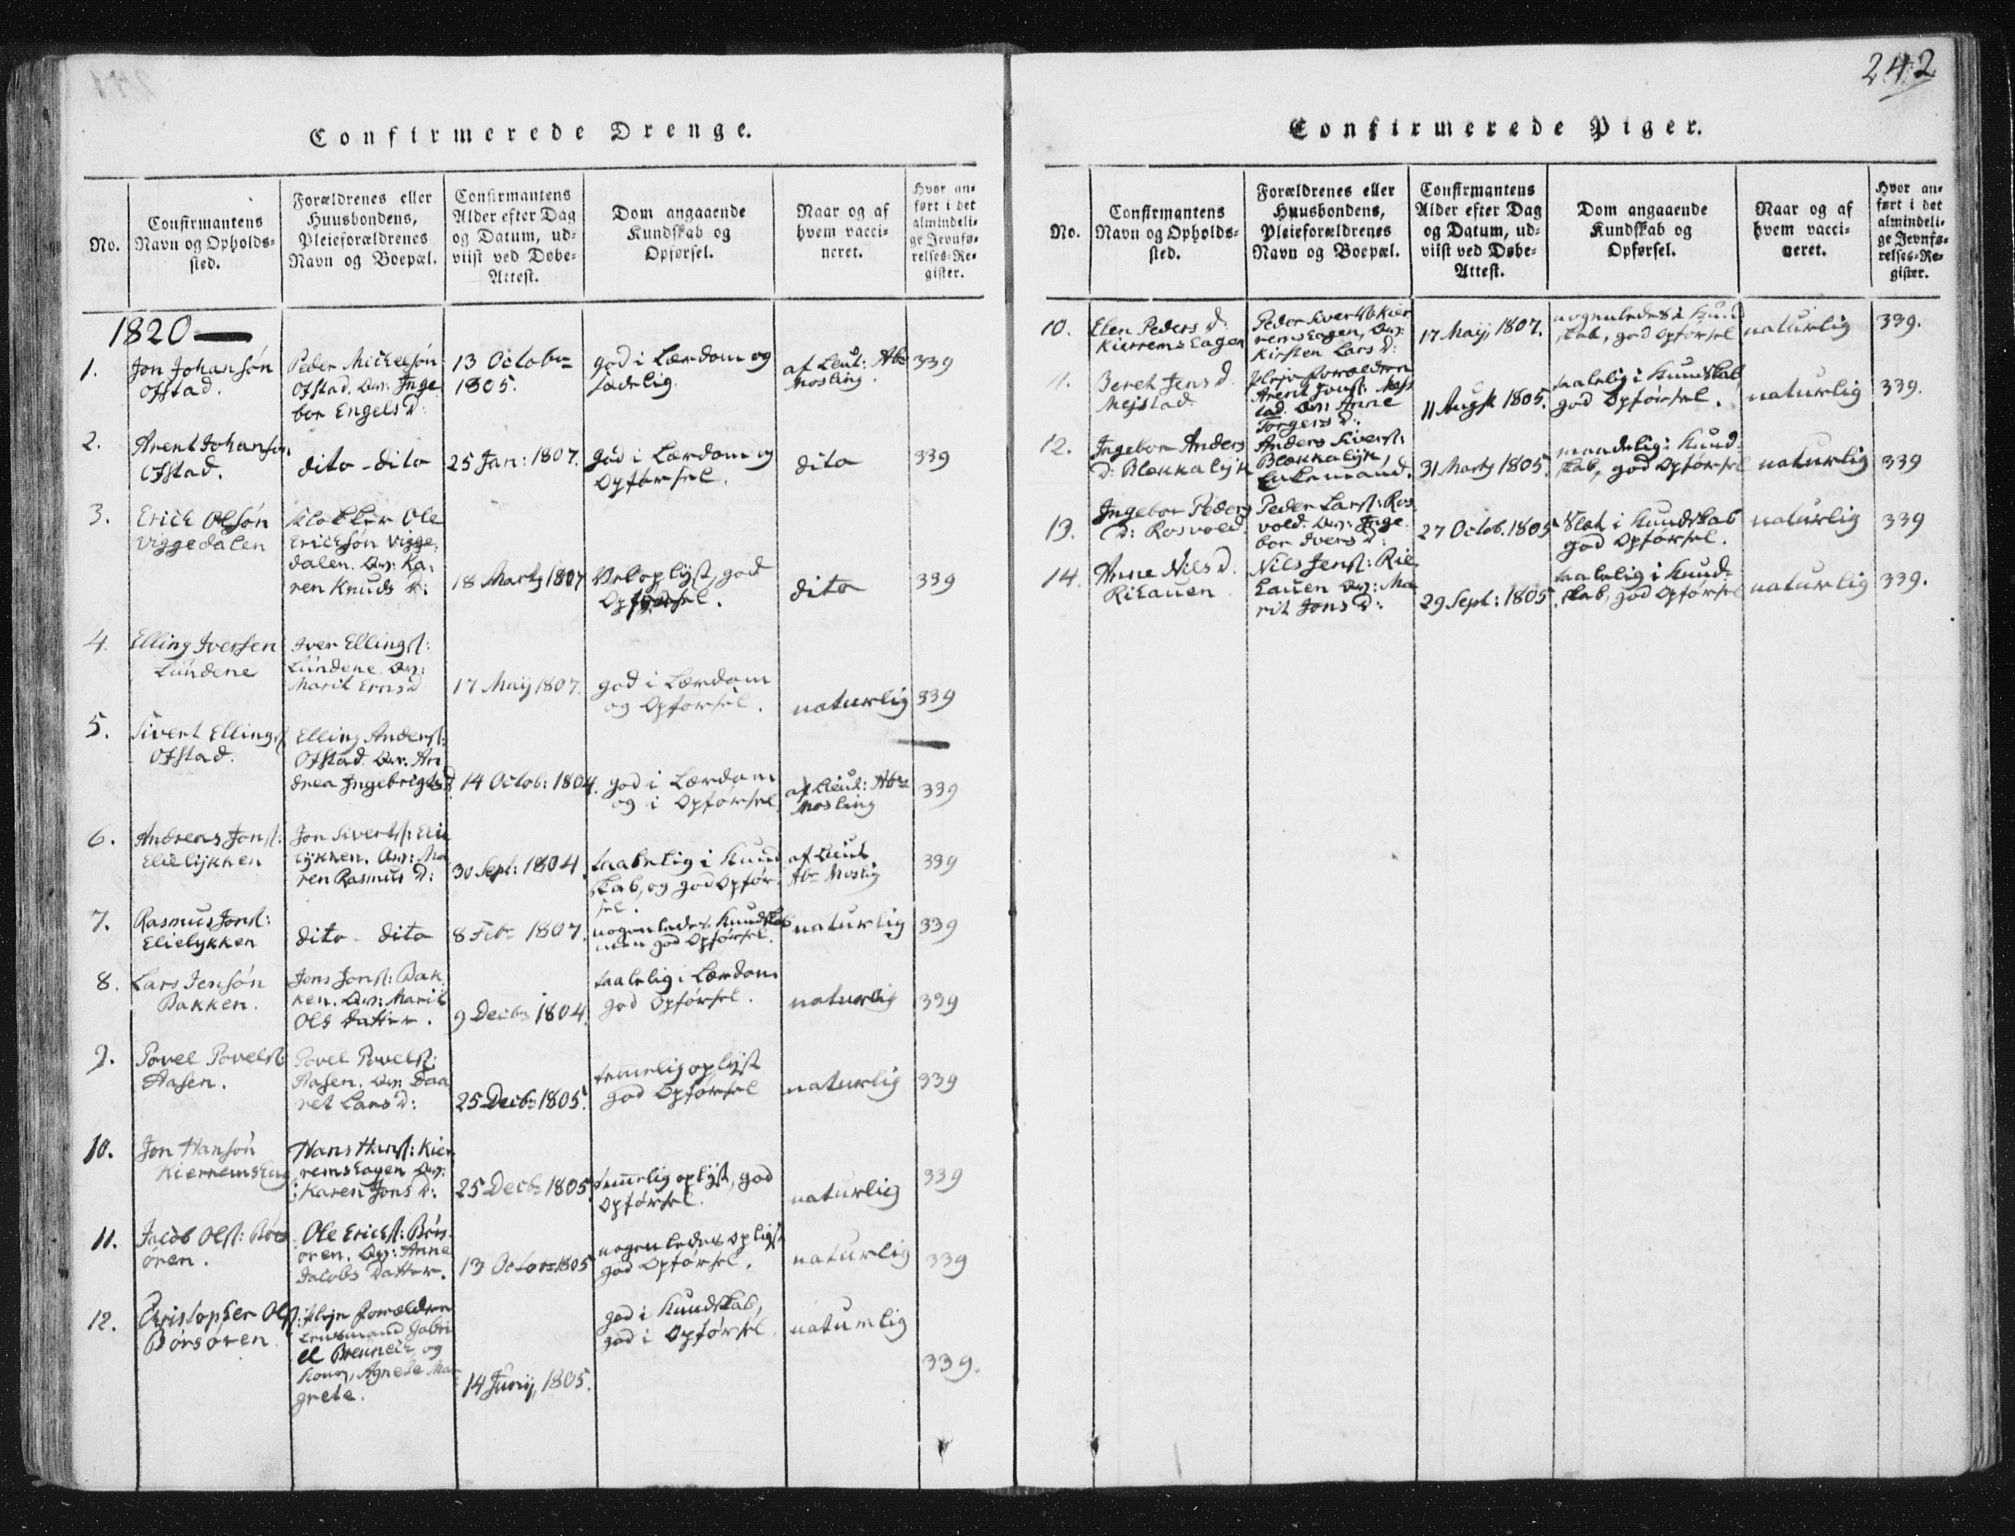 242
Confirmerede Drenge.
No.
Confirmantens
Navn og Opholds-
sted.
Forældrenes eller
Huusbondens,
Pleieforældrenes
Navn og Boepæl.
Confirmantens
Alder efter Dag
og Datum, ud-
viist ved Døbe-
Attest.
Dom angaaende
Kundskab og
Opførsel.
Naar og af
hvem vacci-
neret.
Hvor an-
ført i det
almindeli-
ge Jevnfø-
relses-Re-
gister.
1820
1.
Jon Johansøn
Ofstad.
Peder Mickelsøn
Ofstad. Inge
bor Engels D:
13 Octobr
1805.
god i Lærdom og
sædelig.
af Leut: Abr
Mosling.
339
2.
Arent Johansøn
Ofstad.
dito - dito
25 Jan: 1807.
god i Lærdom og
Opførsel.
dito
339
3.
Erich Olsøn
Viggedalen
Klokker Ole
Erichsøn Vigge-
dalen. Ka-
ren Knuds D:
18 Marty 1807
Vel oplyst, god
Opførsel.
dito
339
4.
Elling Iversen
Lundene
Iver Ellings:
Lundene.
Marit Erns D
17 Maij 1807.
god i Lærdom
og Opførsel.
naturlig
339
5.
Sivert Ellings
Ofstad.
Elling Anders:
Ofstad. An
drea Ingebrigts D
14 Octob: 1804.
god i Lærdom
og i Opførsel
af Lieut: Abr
Mosling
339
6.
Andreas Jons:
Elielykken
Jon Siverts: Elie
lykken. Ma
ren Rasmus D:
30 Sept: 1804.
taalelig i Kund
skab, og god Opfør-
sel.
af Lieut
Abr Moslig
339
7.
Rasmus Jons:
Elielykken
dito - dito
8 Febr 1807.
nogenledes Kundskab
men god Opførsel.
naturlig
339
8.
Lars Jensøn
Bakken.
Jons Jons: Bak-
ken. Marit
Ols Datter.
9 Decbr 1804.
taalelig i Lærdom
god Opførsel.
naturlig
339
9.
Povel Povels
Aasen.
Povel Povels:
Aasen. Daa
ret Lars D:
25 Decbr 1805.
temmelig oplyst
god Opførsel
naturlig
339
10.
Jon Hansøn
Kiernemseag
Hans Hans: Kier
remseagen
Karen Jons D:
25 Decbr 1805.
temelig oplyst, god
Opførsel.
naturlig
339
11.
Jacob Ols: Børs
øren.
Ole Erichs: Børs-
øren. Anne
Jacobs Datter.
13 Octobr 1805
nogenledes oplyst
god Opførsel.
naturlig
339
12.
Christopher Ols
Børsøren.
Plejeforældren
Lensmand Gabri
el Brenneich, og
Kone, Agnete Mar
grete.
14 Junij, 1805.
god i Kundskab,
god i Opførsel.
naturlig
339.
Confirmerede Piger.
No.
Confirmantens
Navn og Opholds-
sted.
Forældrenes eller
Huusbondens,
Pleieforældrenes
Navn og Boepæl.
Confirmantens
Alder efter Dag
og Datum, ud-
viist ved Døbe-
Attest.
Dom angaaende
Kundskab og
Opførsel.
Naar og af
hvem vacci-
neret.
Hvor an-
ført i det
almindeli-
ge Jevnfø-
relses-Re-
gister.
10.
Elen Peders D:
Kierremseagen
Peder Siverts Kier
remseagen,
Kirsten Lars D:
17 Maij 1807.
nogenledes i Kund
skab, god Opførsel
naturlig
339.
11.
Beret Jens D.
Mejstad
Pleje forældren
Arent Jons: Mej
stad. Anne
Torgers D:
11 Augst 1805.
taalelig i Kundskab
god Opførsel.
naturlig
339.
12.
Ingebor Anders
D: Blekkalijk
Anders Sivers:
Blekkalijk,
Enkemand.
31 Marty 1805.
maadelig i Kund-
skab, god Opførsel
naturlig
339
13.
Ingebor Peders
D: Rosvold.
Peder Lars: Ros
vold. Inge
bor Ivers D:
27 Octob. 1805
Slet i Kundskab
god Opførsel.
naturlig
339
14.
Anne Nils D:
Rilauen
Nils Jens: Rie
lauen Ma
rit Jons D:
29 Sept: 1805
taalelig i Kund-
skab, god Opførsel
naturlig
339.